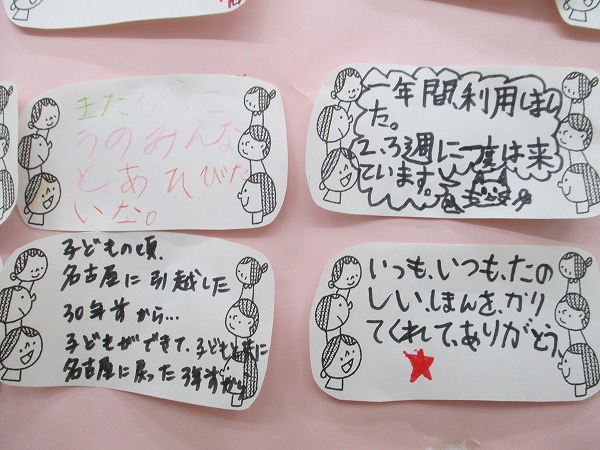 またがっこ
うのみんな
とあそびた
いな。
一年間、利用しまし
た。
2、3週に一度は来
ています。
子どもの頃、
名古屋に引越した
30年前から…
子どもができて、子どもと共に
名古屋に戻った3年前から
いつも、いつも、たの
しい、ほんを、かり
てくれて、ありがとう。